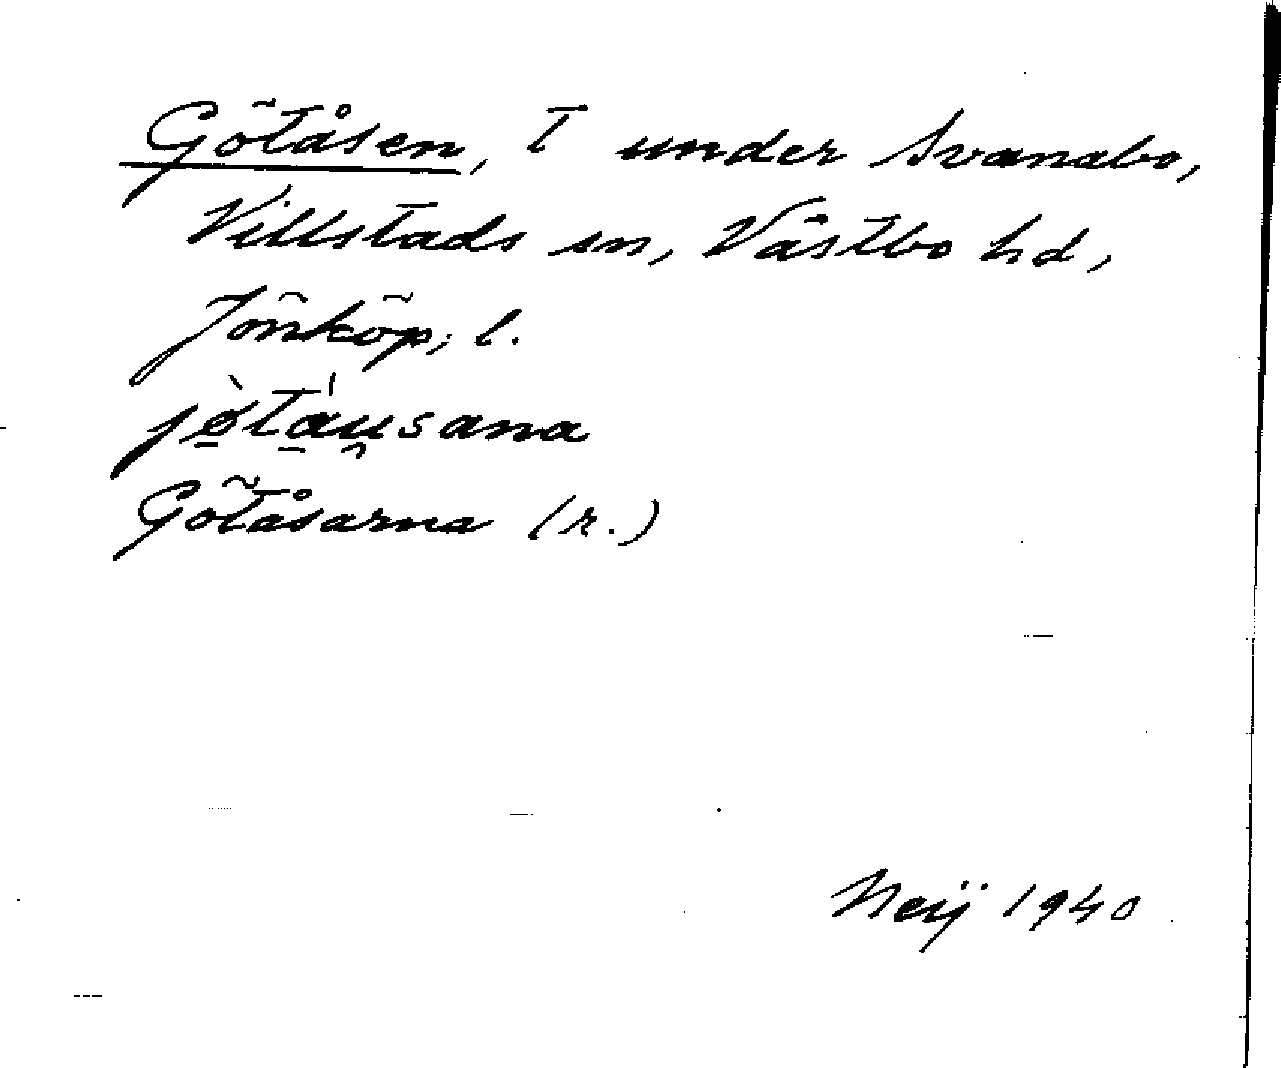 Götåsen, T under Svanabo,
Villstads sn, Västbo hd,
Jönköp; l.
jø̀ta̍u̯sana
Götåsarna (r.)
Neij 1940